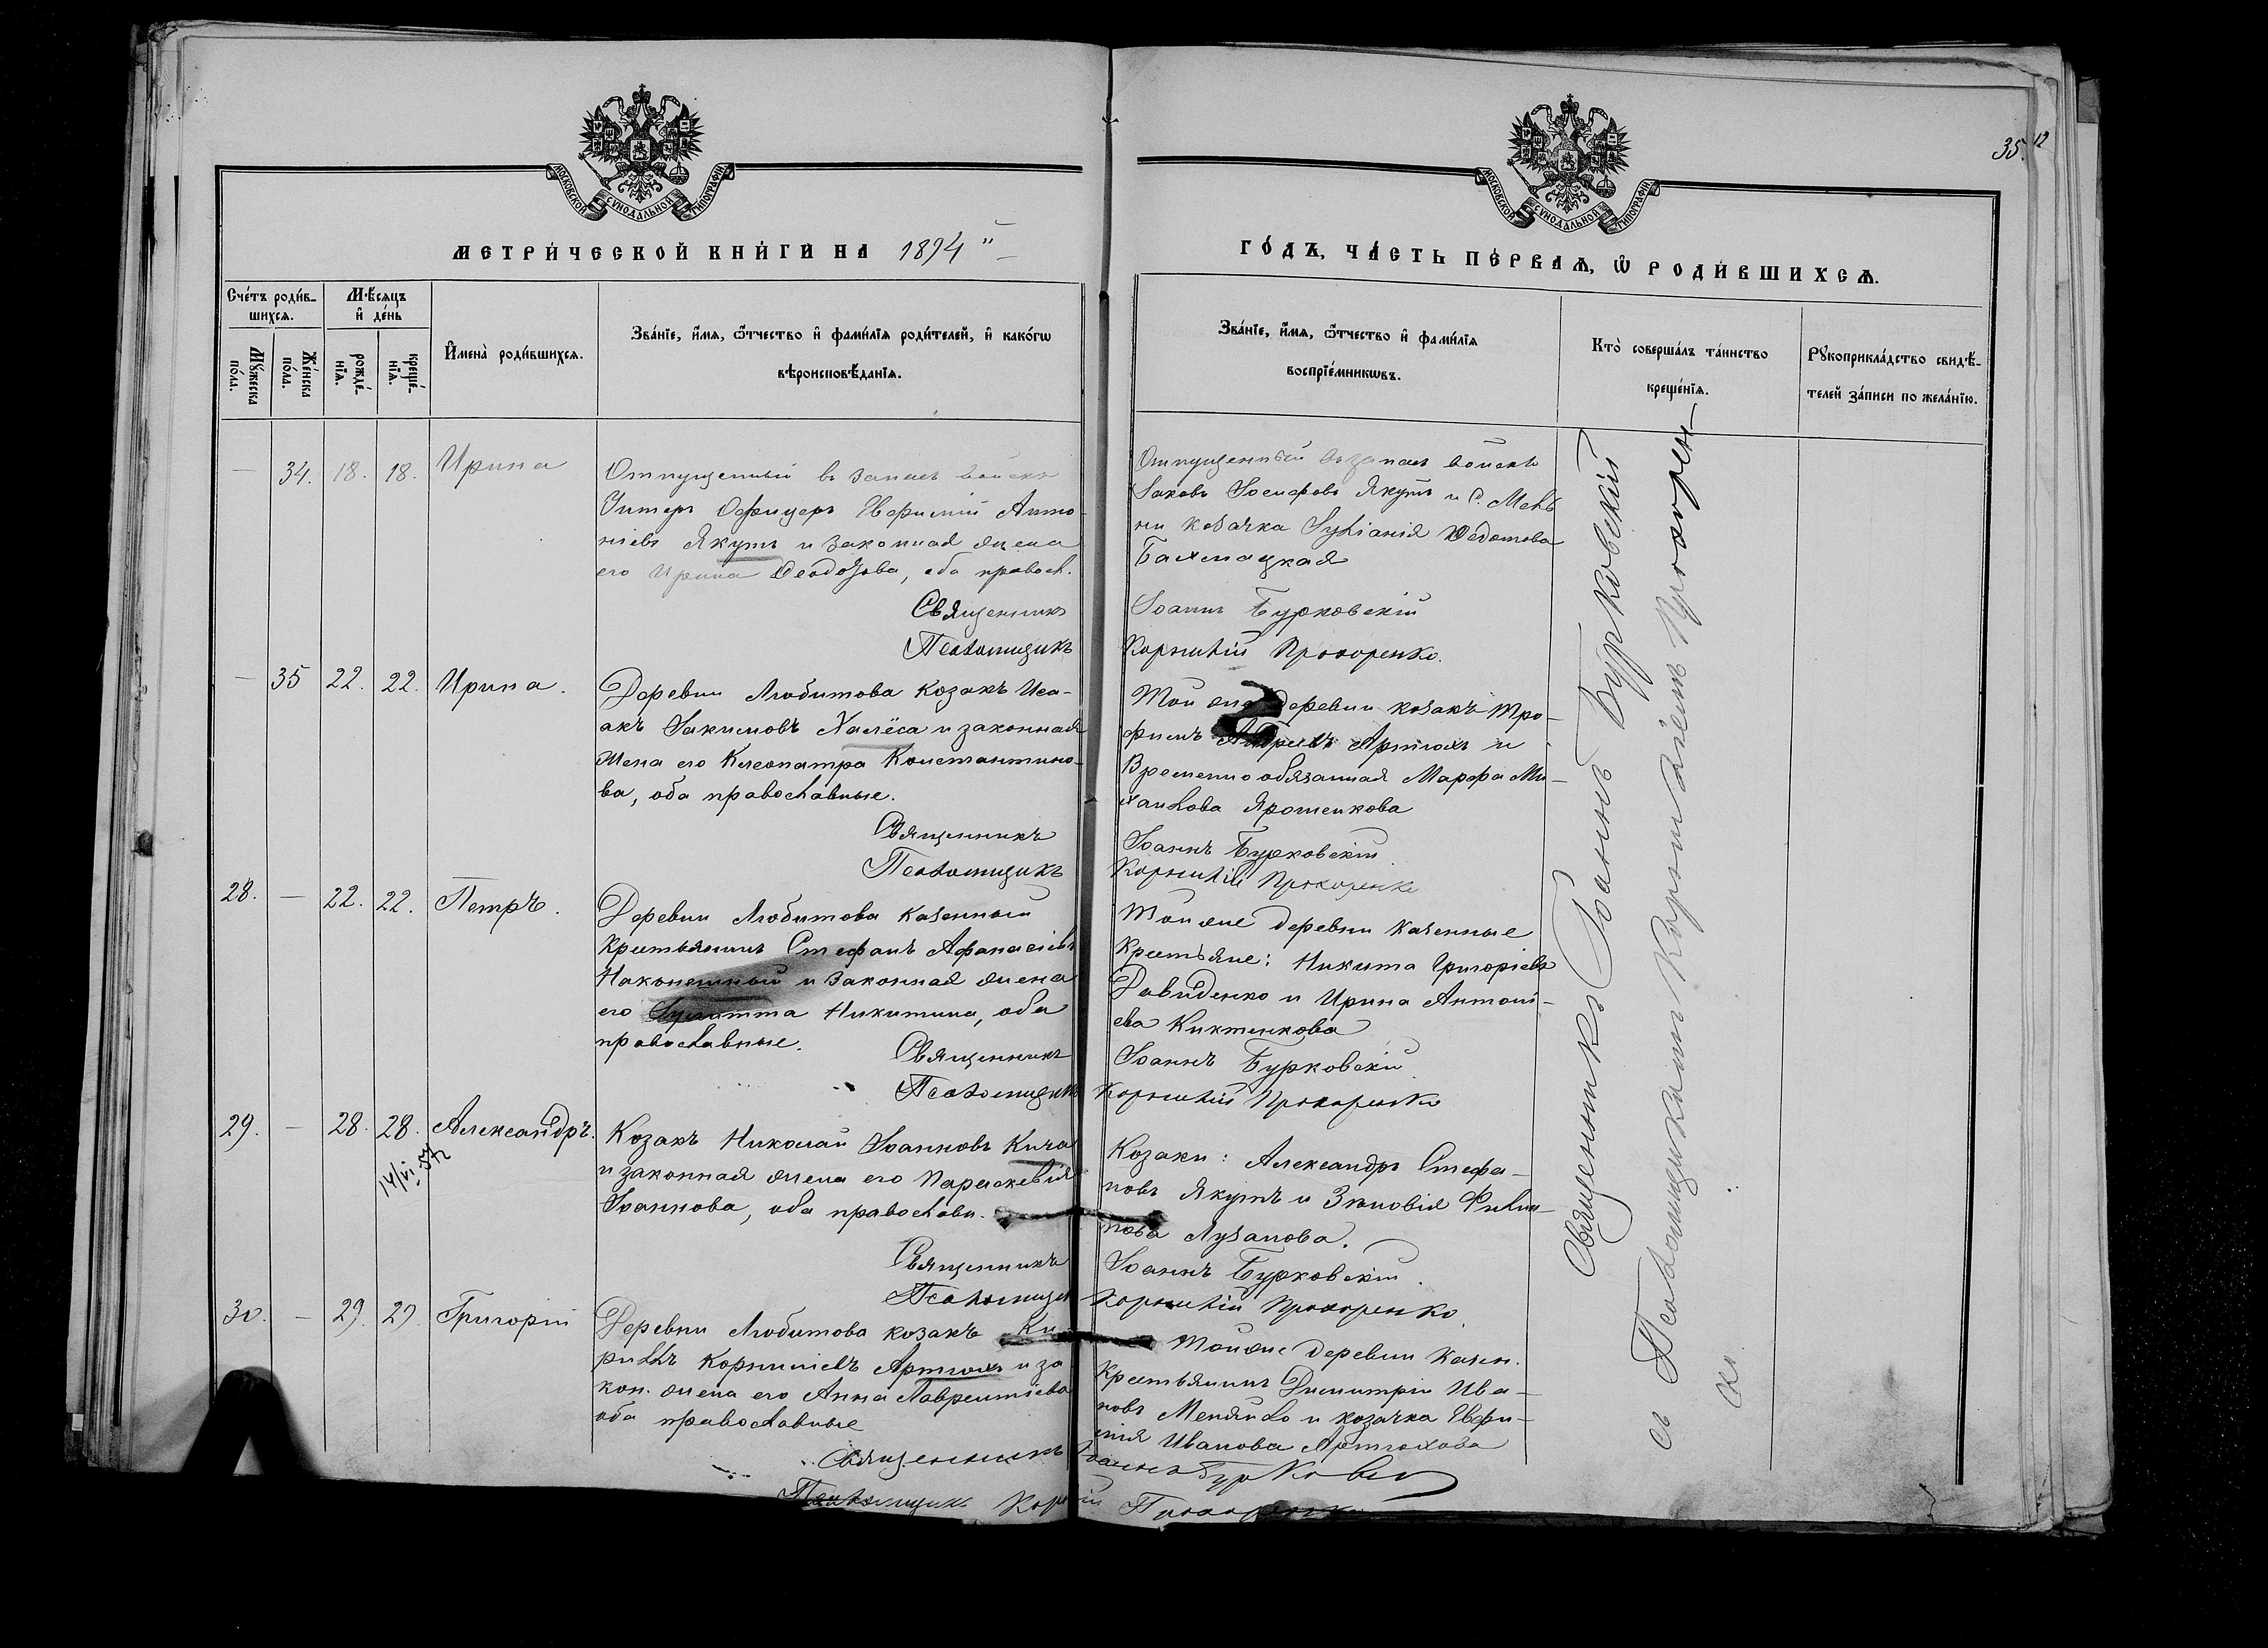 35. 12
МОСКОВСКОЙ СУНОДАЛЬНОЙ ТИПОГРАФІИ
МОСКОВСКОЙ СУНОДАЛЬНОЙ ТИПОГРАФІИ
МЕТРИ́ЧЕСКОЙ КНИ́ГИ НА 1894
ГО́ДЪ, ЧА́СТЬ ПЕ́РВАѦ, Ѿ РОДИ́ВШИХСѦ.
Сче́тъ роди́в-
шихсѧ.
Мѣ́сѧцъ
и҆ де́нь
Мꙋжеска
по́ла.
Же́нска
по́ла.
рожде́-
нїѧ.
креще́-
нїѧ.
И҆мена̀ роди́вшихсѧ.
Зва́нїе, и҆́мѧ, ѻ҆́тчество и҆ фами́лїѧ роди́телей, и҆ како́гѡ
вѣроисповѣ́данїѧ.
Зва́нїе, и҆́мѧ, ѻ҆́тчество и҆ фами́лїѧ
воспрїе́мникѡвъ.
Кто̀ соверша́лъ та́инство
креще́нїѧ.
Рꙋкоприкла́дство свидѣ́-
телей за́писи по жела́нїю.
— 34. 18. 18. Ирина
Отпущенный въ запасъ войскъ
Унтеръ Офицеръ Евфимій Анто-
ніевъ Якутъ и законная жена
его Ирина Феодозова, оба правосл.
Священникъ
Псаломщикъ
Отпущенный въ запасъ войскъ
Іаковъ Іосифовъ Якутъ и С. Мень
ни козачка Іуліанія Федотова
Бахмацкая
Іоаннъ Бурковскій
Корнилій Прохоренко.
— 35 22. 22. Ирина.
Деревни Любитова козакъ Иса-
акъ Іакимовъ Халёса и законная
жена его Клеопатра Константино-
ва, оба православные.
Священникъ
Псаломщикъ
Той же деревни козакъ Тро-
фимъ Артюхъ и
Временно обязанная Марфа Ми-
хаилова Ярошенкова
Іоаннъ Бурковскій
Корнилій Прохоренко
28. — 22. 22. Петръ.
Деревни Любитова казенный
крестьянинъ Стефанъ Афанасіевъ
Наконешный и законная жена
его Никитина, оба
православные.
Священникъ
Псаломщикъ
Той же деревни казенные
крестьяне: Никита Григоріевъ
Давиденко и Ирина Антоні-
ева Киктенкова
Іоаннъ Бурковскій
Корнилій Прохоренко
29. — 28. 28. Александръ.
14/VI 57г
Козакъ Николай Іоанновъ Кича
и законная жена его Параскевія
Іоаннова, оба православн.
Священникъ
Псаломщикъ
Козаки: Александръ Стефа-
новъ Якутъ и Зиновія Филип-
пова Лузанова.
Іоаннъ Бурковскій.
Корнилій Прохоренко.
30. — 29. 29. Григорій
Деревни Любитова козакъ Ки-
риллъ Корниліевъ Артюхъ и за
кон. жена его Анна Лаврентіева
оба православные
Священникъ Іоаннъ Бурковскій
Псаломщикъ Корнилій Прохоренко
Той же деревни казен.
крестьянинъ Димитрій Ива-
новъ Меняйло и козачка Евфи-
мія Иванова Артюхова
Священникъ Іоаннъ Бурковскій
съ Псаломщикомъ Корниліемъ Прохорен-